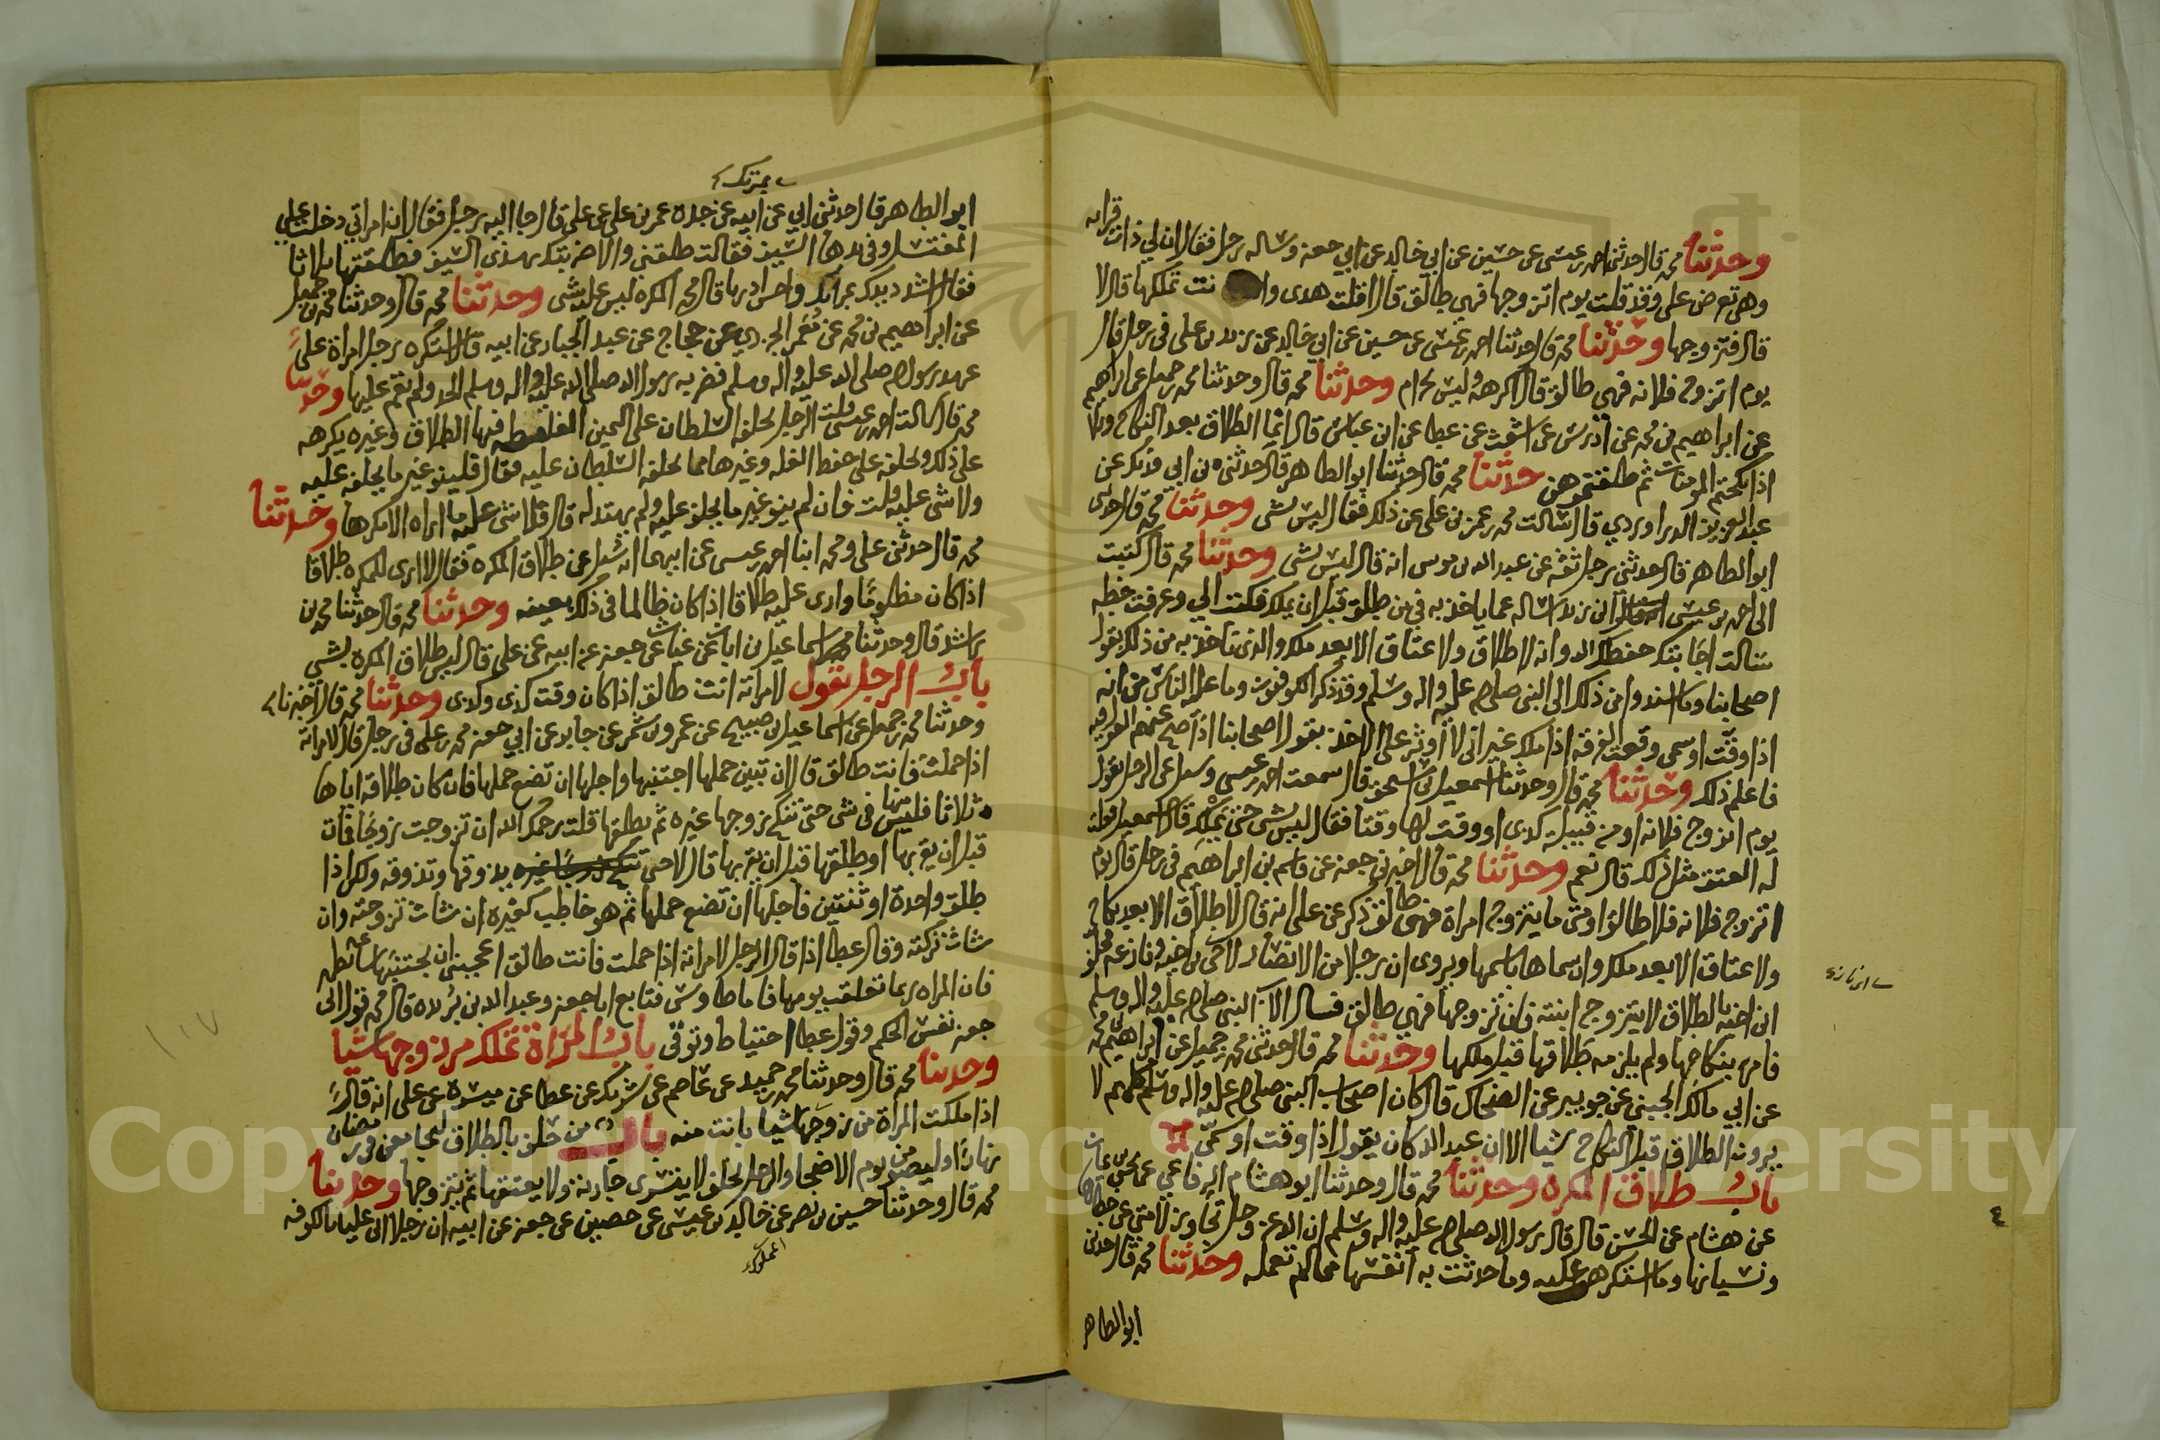 وحدثنا محمد قال حدثني احمد بن عيسى عن حسين عن ابي خالد عن ابي جعفر وساله رجل فقال ان لي ذات قرابه
وهي تعرض علي وقد قلت يوم اتزوجها فهي طالق قال اقلت هدى وا نت تملكها قال لا
قال فتزوجها وحدثنا محمد قال حدثنا احمد بن عيسى عن حسين عن ابي خالد عن زيد بن علي في رجل قال
يوم اتزوج فلانه فهي طالق قال اكرهه وليس بحرام وحدثنا محمد قال وحدثنا محمد بن جميل عن ابراهيم
عن ابراهيم بن محمد عن عن اشعث عن عطا عن ابن عباس قال انما الطلاق بعد النكاح
اذا نكحتم المومنات ثم طلقتموهن حدثنا محمد قال حدثنا ابو الطاهر قال حدثني بن ابي فديك عن
عبد العزيز الدراوردي قال سالت محمد بن عمر بن علي عن ذلك فقال ليس بشي وحدثنا محمد قال حدثني
ابو الطاهر قال حدثني رجل ثقه عن عبد الله بن موسى انه قال ليس بشي وحدثنا محمد قال كتبت
الى احمد بن عيسى اساله عما ياخذ به في من طلق قبل ان يملك فكتب الي وعرفت خطه
سالت اجابتك حفظك الله وانه لا طلاق ولا عتاق الا بعد ملك والذي تاخذ به من ذلك بقول
اصحابنا وما اسندوا من ذلك الى النبي صلى الله عليه واله وسلم وقد ذكر الكوفيون وما عليه الناس من انه
اذا وقت او سمى وقعت الفرقه اذا ملك غير اني لا اوثر على الاخذ بقول اصحابنا اذا صح عنهم
فاعلم ذلك وحدثنا محمد قال وحدثنا اسمعيل بن اسحق قال سمعت احمد بن عيسى وسئل عن الرجل يقول
يوم اتزوج فلانه او من قبيلة كدى او وقت لها وقتا فقال ليس بشي حتى يملك قال اسمعيل قلت
له العتق مثل ذلك قال نعم وحدثنا محمد قال اخبرني جعفر عن قاسم بن ابراهيم في رجل قال يوم
اتزوج فلانه فلا طالق او متى ما يتزوج امراة فهي طالق ذكر عن علي انه قال لا طلاق الا بعد نكاح
ولا عتاق الا بعد ملك وان سماها باسمها ويروى ان رجلا من الانصار لاحى بن اخيه ونازعه فحلف
ابن اخيه بالطلاق لا يتزوج ابنته فان تزوجها فهي طالق فسال النبي صلى الله عليه واله وسلم
فامره بنكاحها ولم يلزمه طلاقها قبل ملكها وحدثنا محمد قال حدثني محمد بن جميل عن ابراهيم بن محمد
عن ابي مالك الجنبي عن جويبر عن الضحاك قال كان اصحاب النبي صلى الله عليه واله وسلم كلهم لا
يرون الطلاق قبل النكاح شيا الا ان عبد الله كان يقول اذا وقت او سمى
باب طلاق المكره وحدثنا محمد قال وحدثنا ابو هشام الرفاعي عن يحيى بن
عن هشام عن الحسن قال قال رسول الله صلى الله عليه واله وسلم ان الله عز وجل تجاوز لامتي عن خطاها
ونسيانها وما استكرهو عليه وما حدثت به انفسها ما لم تعمله وحدثنا محمد قال حدثني
ابو الطاهر
ابو الطاهر قال حدثني ابي عن ابيه عن جده عمر بن علي عن علي قال جا اليه رجل فقال ان امراتي دخلت علي
المغتسل وفي يدها السيف فقالت طلقني والا ضربتك بهذى السيف فطلقتها ثلاثا
فقال اشدد يدك بمراتك واحسن ادبها قال محمد المكره ليس عليه شي وحدثنا محمد قال وحدثنا محمد بن جميل
عن ابراهيم بن محمد عن عن حجاج عن عبد الجبار عن ابيه قال استكره رجل امراة على
عهد رسول الله صلى الله عليه واله وسلم فضربه رسول الله صلى الله عليه واله وسلم الحد ولم يقم عليها وحدثنا
محمد قال سالت احمد بن عيسى قلت الرجل يحلفه السلطان على اليمين فيها الطلاق وغيره يكرهه
على ذلك ويحلفه على وغيرها مما يحلفه السلطان عليه فقال فلينو غير ما يحلفه عليه
ولا شي عليه قلت فان لم ينو غير ما يحلف عليه ولم يهتد له قال فلا شي عليه ما اراه الا مكرها وحدثنا
محمد قال حدثني علي ومحمد ابنا احمد بن عيسى عن ابيهما انه سئل عن طلاق المكره فقال لا ارى للمكره طلاقا
اذا كان مظلوما وارى عليه طلاقا اذا كان ظالما في ذلك بعينه وحدثنا محمد قال حدثنا محمد بن
راشد قال وحدثنا اسماعيل بن ابان عن غياث عن جعفر عن ابيه عن علي قال ليس طلاق المكره بشي
باب الرجل يقول لامراته انت طالق اذا كان وقت كذى وكدى وحدثنا محمد قال اخبرنا
وحدثنا محمد بن جميل عن اسماعيل بن صبيح عن عمرو بن شمر عن جابر عن ابي جعفر محمد بن علي في رجل قال لامراته
اذا حملت فانت طالق قال ان تبين حملها اجتنبها واجلها ان تضع حملها فان كان طلاقه اياها
ثلاثا فليس منها في شي حتى تنكح زوجها غيره ثم يطلقها قلت رحمك الله ان تزوجت زوجا فمات
قبل ان يقربها او طلقها قبل ان يقربها قال لا حتى يذوقها وتذوقه ولكن اذا
طلق واحدة او ثنتين فاجلها ان تضع حملها ثم هو خاطب كغيره ان شات تزوجته وان
شات تركته وقال عطا اذا قال الرجل لامراته اذا حملت فانت طالق اعجبني ان يجتنبها
فان المراه ربما تعلقت يومها فاما طاوس فتابع ابا جعفر وعبد الله بن بريده قال محمد قول ابي
جعفر نفس الحكم وقول عطا احتياط وتوقي باب المراة تملك من زوجها شيا
وحدثنا محمد قال وحدثنا محمد بن جميل عن عاصم عن شريك عن عطا عن ميسرة عن علي انه قال
اذا ملكت المراة من زوجها شيا بانت منه باب من حلف بالطلاق ليجامعن في رمضان
نهارا او ليصومن يوم الاضحا والرجل يحلف لا يشترى جارية ولا يعتقها ثم يتزوجها وحدثنا
محمد قال وحدثنا حسين بن نصر عن خالد بن عيسى عن حصين عن جعفر عن ابيه ان رجلا اتى عليا بالكوفه
١١٧